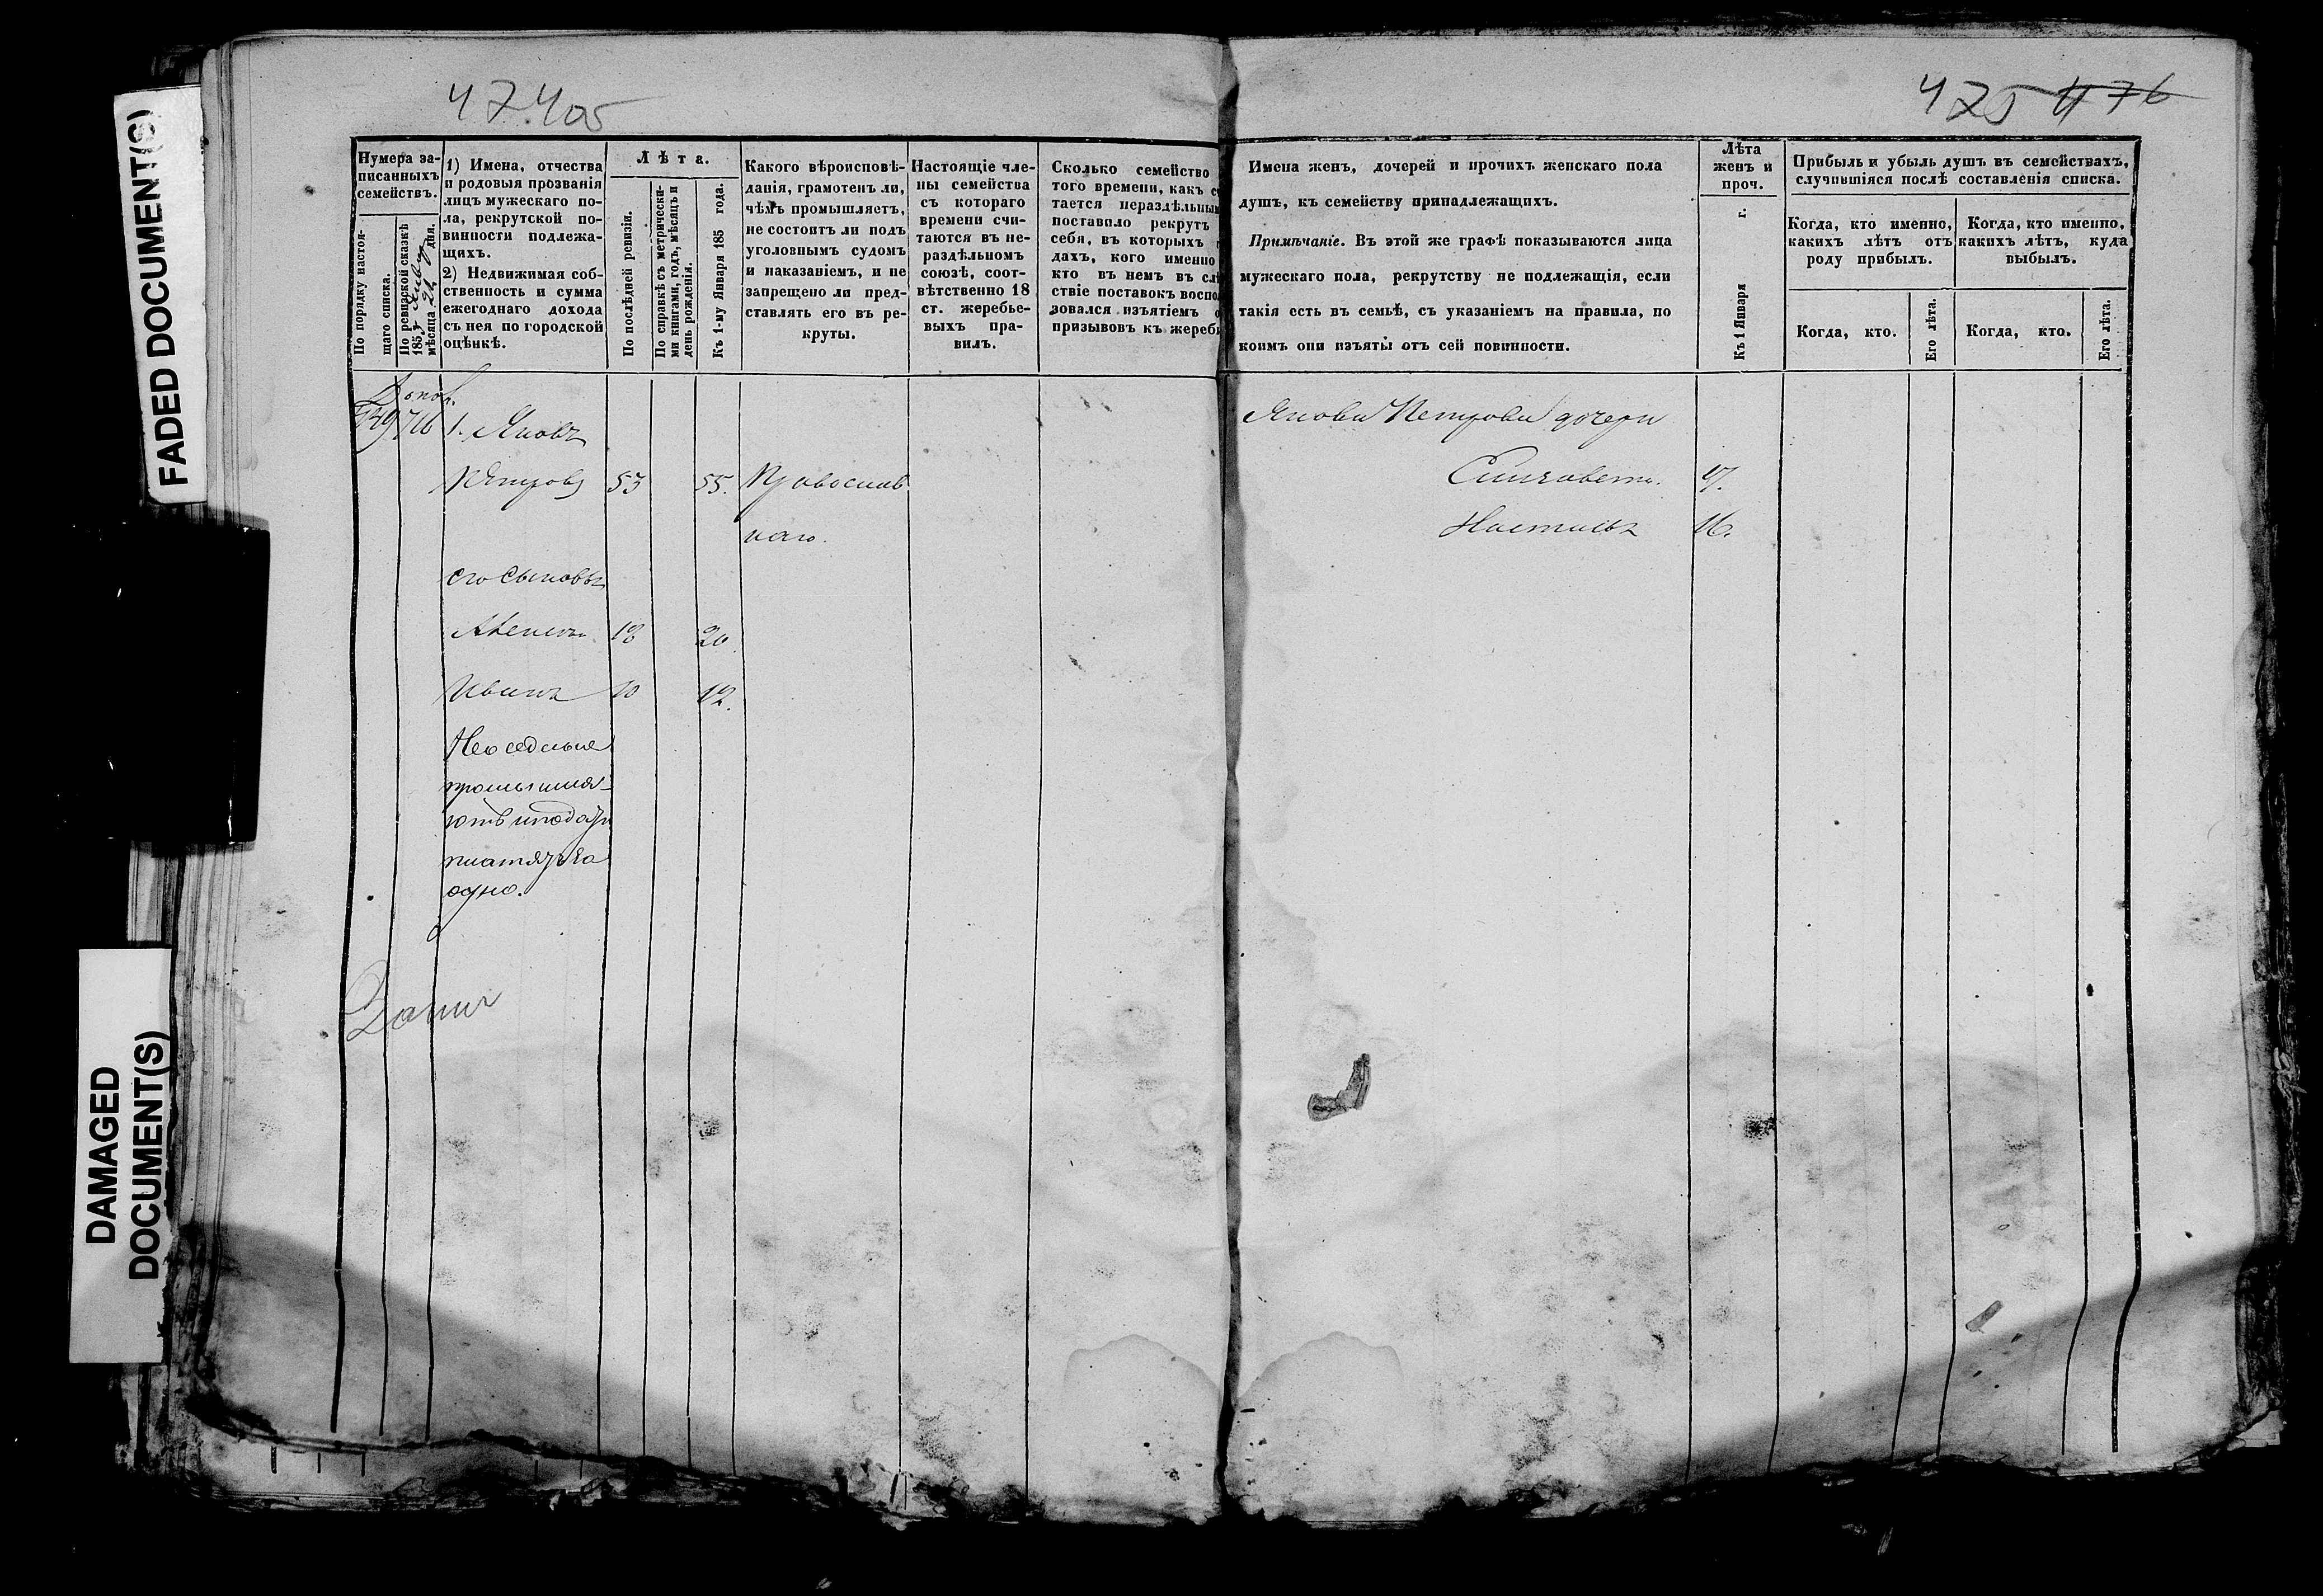 FADED DOCUMENT(S)
DAMAGED
DOCUMENT(S)
425 476
Нумера за-
писанныхъ
семействъ.
По порядку настоя-
щаго списка.
По ревизской сказкѣ
185
мѣсяца 21 дня.
1) Имена, отчества
и родовыя прозванія
лицъ мужескаго по-
ла, рекрутской по-
винности подлежа-
щихъ.
2) Недвижимая соб-
ственность и сумма
ежегоднаго дохода
съ нея по городской
оцѣнкѣ.
Лѣта.
По послѣдней ревизіи.
По справкѣ съ метрически-
ми книгами, годъ, мѣсяцъ и
день рожденія.
Къ 1-му Января 185 года.
Какого вѣроисповѣ-
данія, грамотенъ ли,
чѣмъ промышляетъ,
не состоитъ ли подъ
уголовнымъ судомъ
и наказаніемъ, и не
запрещено ли пред-
ставлять его въ ре-
круты.
Настоящіе чле-
ны семейства
съ котораго
времени счи-
таются въ не-
раздѣльномъ
союзѣ, соот-
вѣтственно 18
ст. жеребье-
выхъ пра-
вилъ.
Сколько семейство
того времени, какъ с
тается нераздѣльным
поставило рекрутъ
себя, въ которыхъ
дахъ, кого именно
кто въ немъ въ слѣ
ствіе поставокъ воспо
зовался изъятіемъ о
призывовъ къ жереб
Имена женъ, дочерей и прочихъ женскаго пола
душъ, къ семейству принадлежащихъ.
Примѣчаніе. Въ этой же графѣ показываются лица
мужескаго пола, рекрутству не подлежащія, если
такія есть въ семьѣ, съ указаніемъ на правила, по
коимъ они изъяты отъ сей повинности.
Лѣта
женъ и
проч.
Къ 1 Января г.
Прибыль и убыль душъ въ семействахъ,
случившіяся послѣ составленія списка.
Когда, кто именно,
какихъ лѣтъ отъ
роду прибылъ.
Когда, кто именно,
какихъ лѣтъ, куда
выбылъ.
Когда, кто.
Его лѣта.
Когда, кто.
Его лѣта.
716 1. Яковъ
Петровъ 53 55. Православ
наго.
его сыновья
18 20.
Иванъ 10 12.
Неоседлые
промышля-
ютъ
одно.
Якова Петрова дочери
Елизавета. 17.
16.